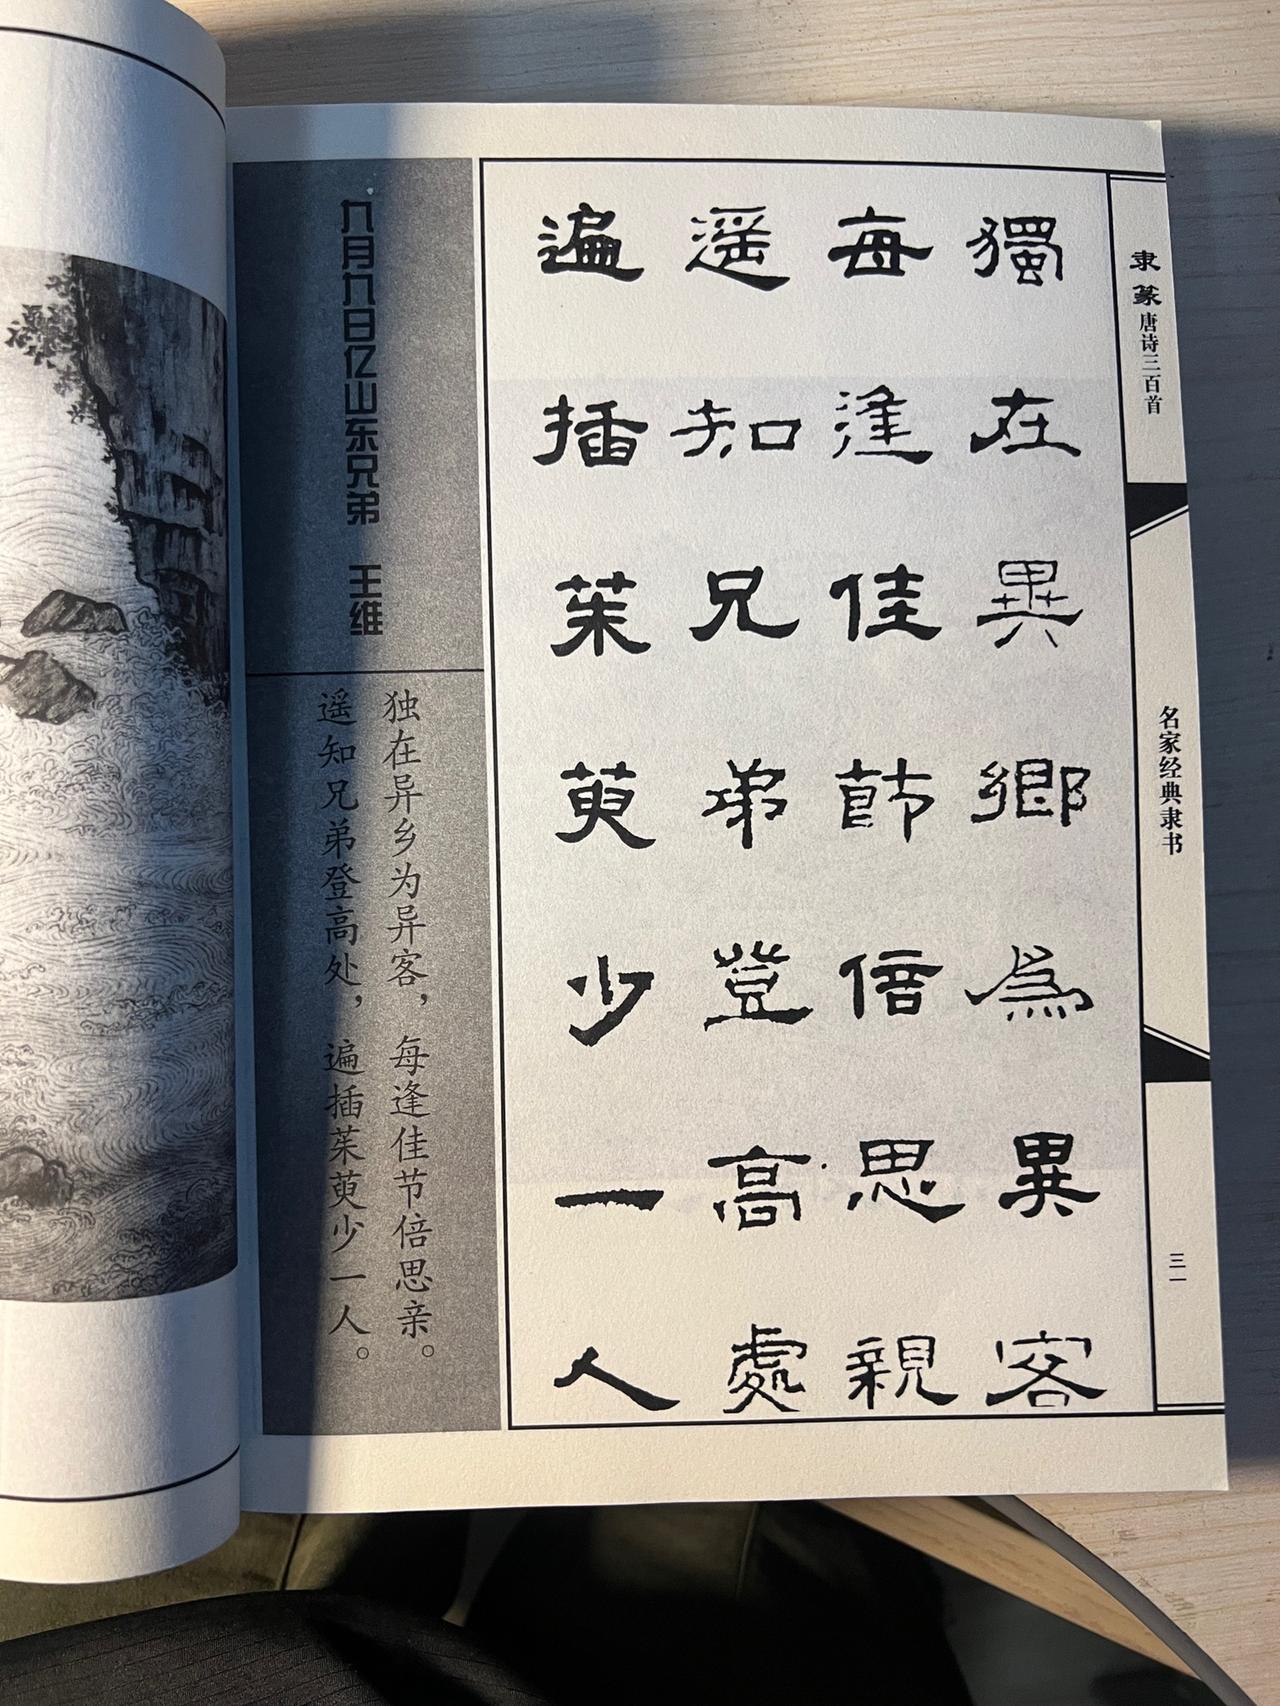 隶篆唐诗三百首
名家经典隶书
三一
獨在異鄉為異客
每逢佳節倍思親
遥知兄弟登高處
遍插茱萸少一人
九月九日亿山东兄弟 王维
独在异乡为异客，每逢佳节倍思亲。
遥知兄弟登高处，遍插茱萸少一人。